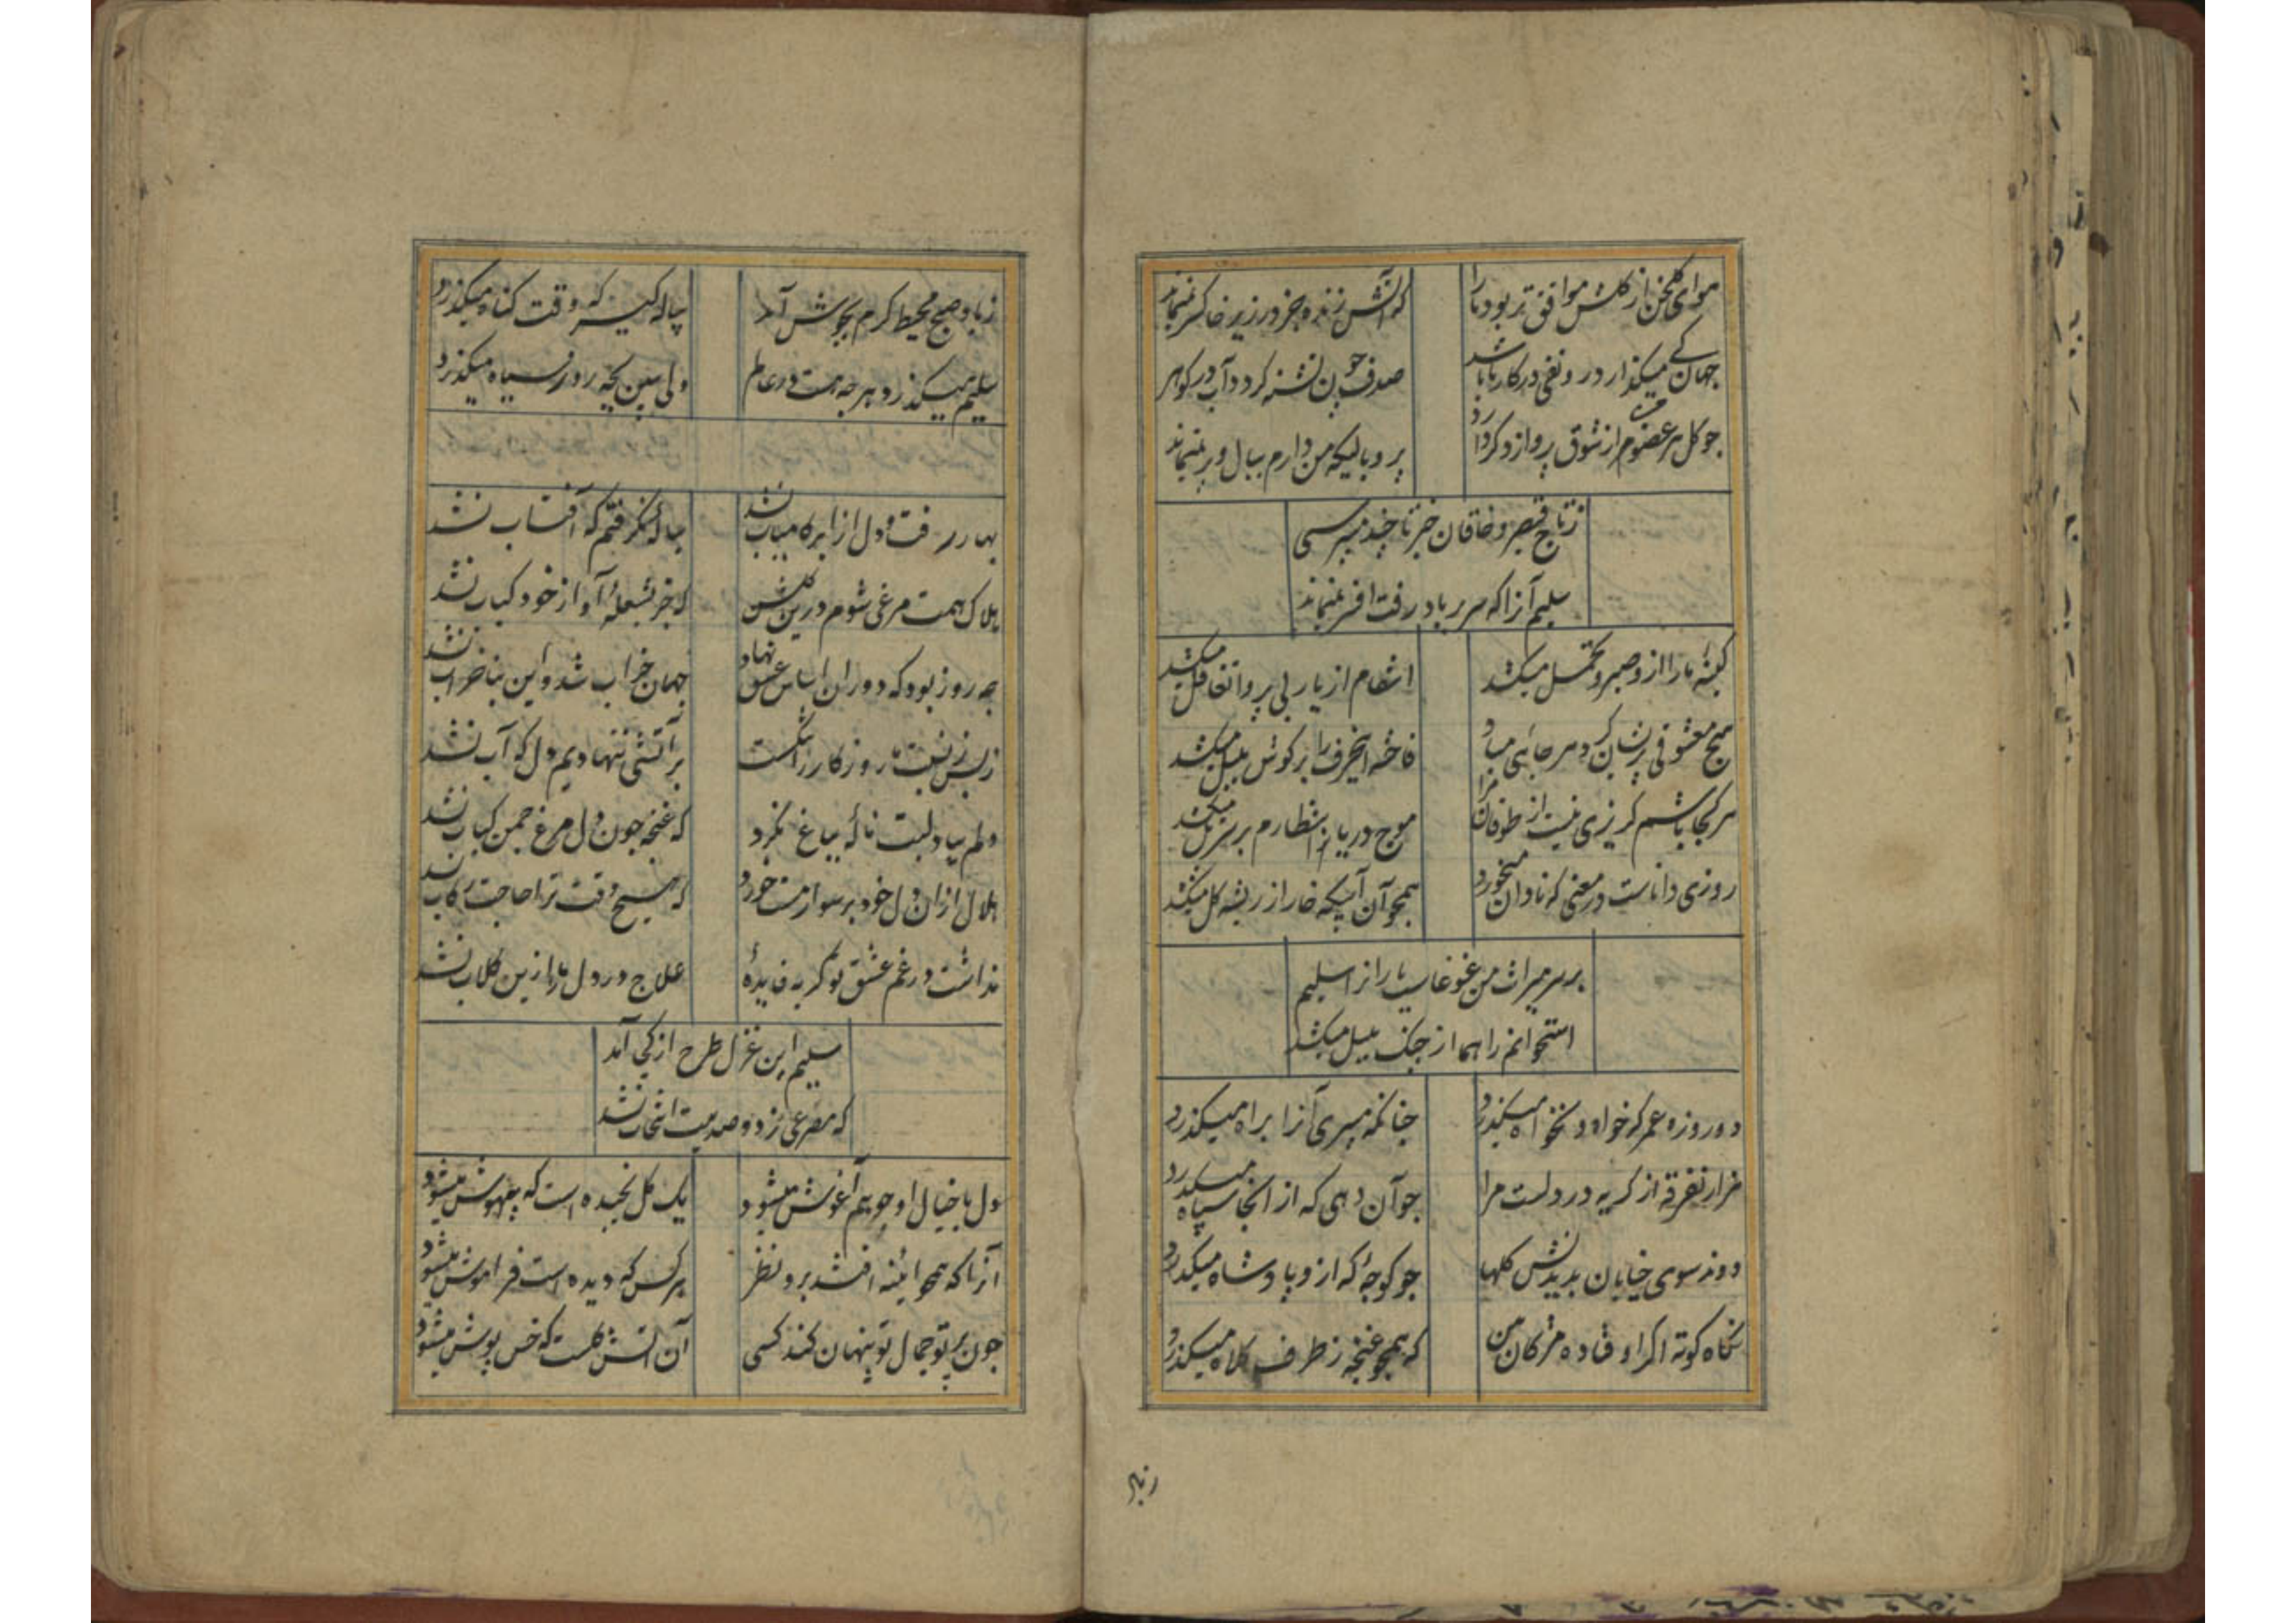 هوای گلخن از گلشن موافق تر بود ما را
که آتش زنده جز در زیر خاکستر نمیماند
جهان کی میگذارد رونقی در کار ما باشد
صدف چون تشنه گردد آب در گوهر نمیماند
چو گل هر عضوم از شوق پرواز دگر دارد
پر و بالیکه من دارم ببال و پر نمیماند
ز تاج قیصر و خاقان خبر تا چند میپرسی
سلیم آنرا که سر بر باد رفت افسر نمیماند
کینه ما را از و صبر و تحمل میکشد
انتقام از یار بی پروا تغافل میکشد
هیچ معشوقی پریشان گرد و هرجائی مباد
فاخته این حرف را بر گوش بلبل میکشد
هر کجا باشم گریزی نیست از طوفان مرا
موج دریا ز انتظارم بر سر پل میکشد
روزی داناست در معنی که نادان میخورد
همچو آن آبیکه خار از ریشه گل میکشد
بر سر میراث من غوغاست یاران را سلیم
استخوانم را هما از چنگ بلبل میکشد
دو روزه عمر که خواه و نخواه میگذرد
چنانکه میبری آنرا براه میگذرد
هزار تفرقه از گریه در دلست مرا
چو آن دهی که از آنجا سپاه میگذرد
دوند سوی خیابان بدیدنش گلها
چو کوچه که ازو پادشاه میگذرد
نگاه کوته اگر اوفتاده مژگان من
که همچو غنچه ز طرف کلاه میگذرد
زباد
ز باد صبح محیط کرم بجوش آمد
پیاله گیر که وقت گناه میگذرد
سلیم میگذرد هر چه هست در عالم
ولی ببین بچه روز سیاه میگذرد
بهار رفت و دل از ابر کامیاب نشد
پیاله نگرفتم که آفتاب نشد
هلاک همت مرغی شوم درین گلشن
که جز بشعله آواز خود کباب نشد
چه روز بود که دوران اساس عشق نهاد
جهان خراب شد و این بنا خراب نشد
ز بس ز نسبت ما روزگار را ننگست
بر آتشی ننهادیم دل که آب نشد
دلم بیاد لبت ناله بباغ نکرد
که غنچه چون دل مرغ چمن کباب نشد
هلال ازان دل خود بر سوار مست خورد
که هیچ وقت ترا حاجت رکاب نشد
نداشت در غم عشق تو گریه فایده
علاج درد دل ما ازین گلاب نشد
سلیم این غزل طرح از کجی آمد
که مصرعی ز دو صد بیت انتخاب نشد
دل با خیال او چو هم آغوش میشود
یک گل نچیده است که بیهوش میشود
آنرا که همچو ائینه افتد برو نظر
هر کس که دیده است فراموش میشود
چون پرتو جمال تو پنهان کند کسی
آن آتش گلست که خس پوش میشود